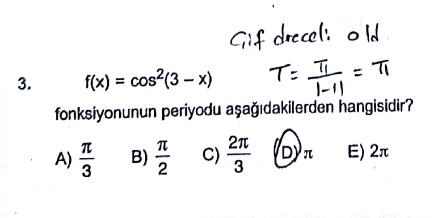 Çif dreceli old
3. f(x) = cos²(3 – x) T = π/|-1| = π
fonksiyonunun periyodu aşağıdakilerden hangisidir?
A) π/3 B) π/2 C) 2π/3 D) π E) 2π